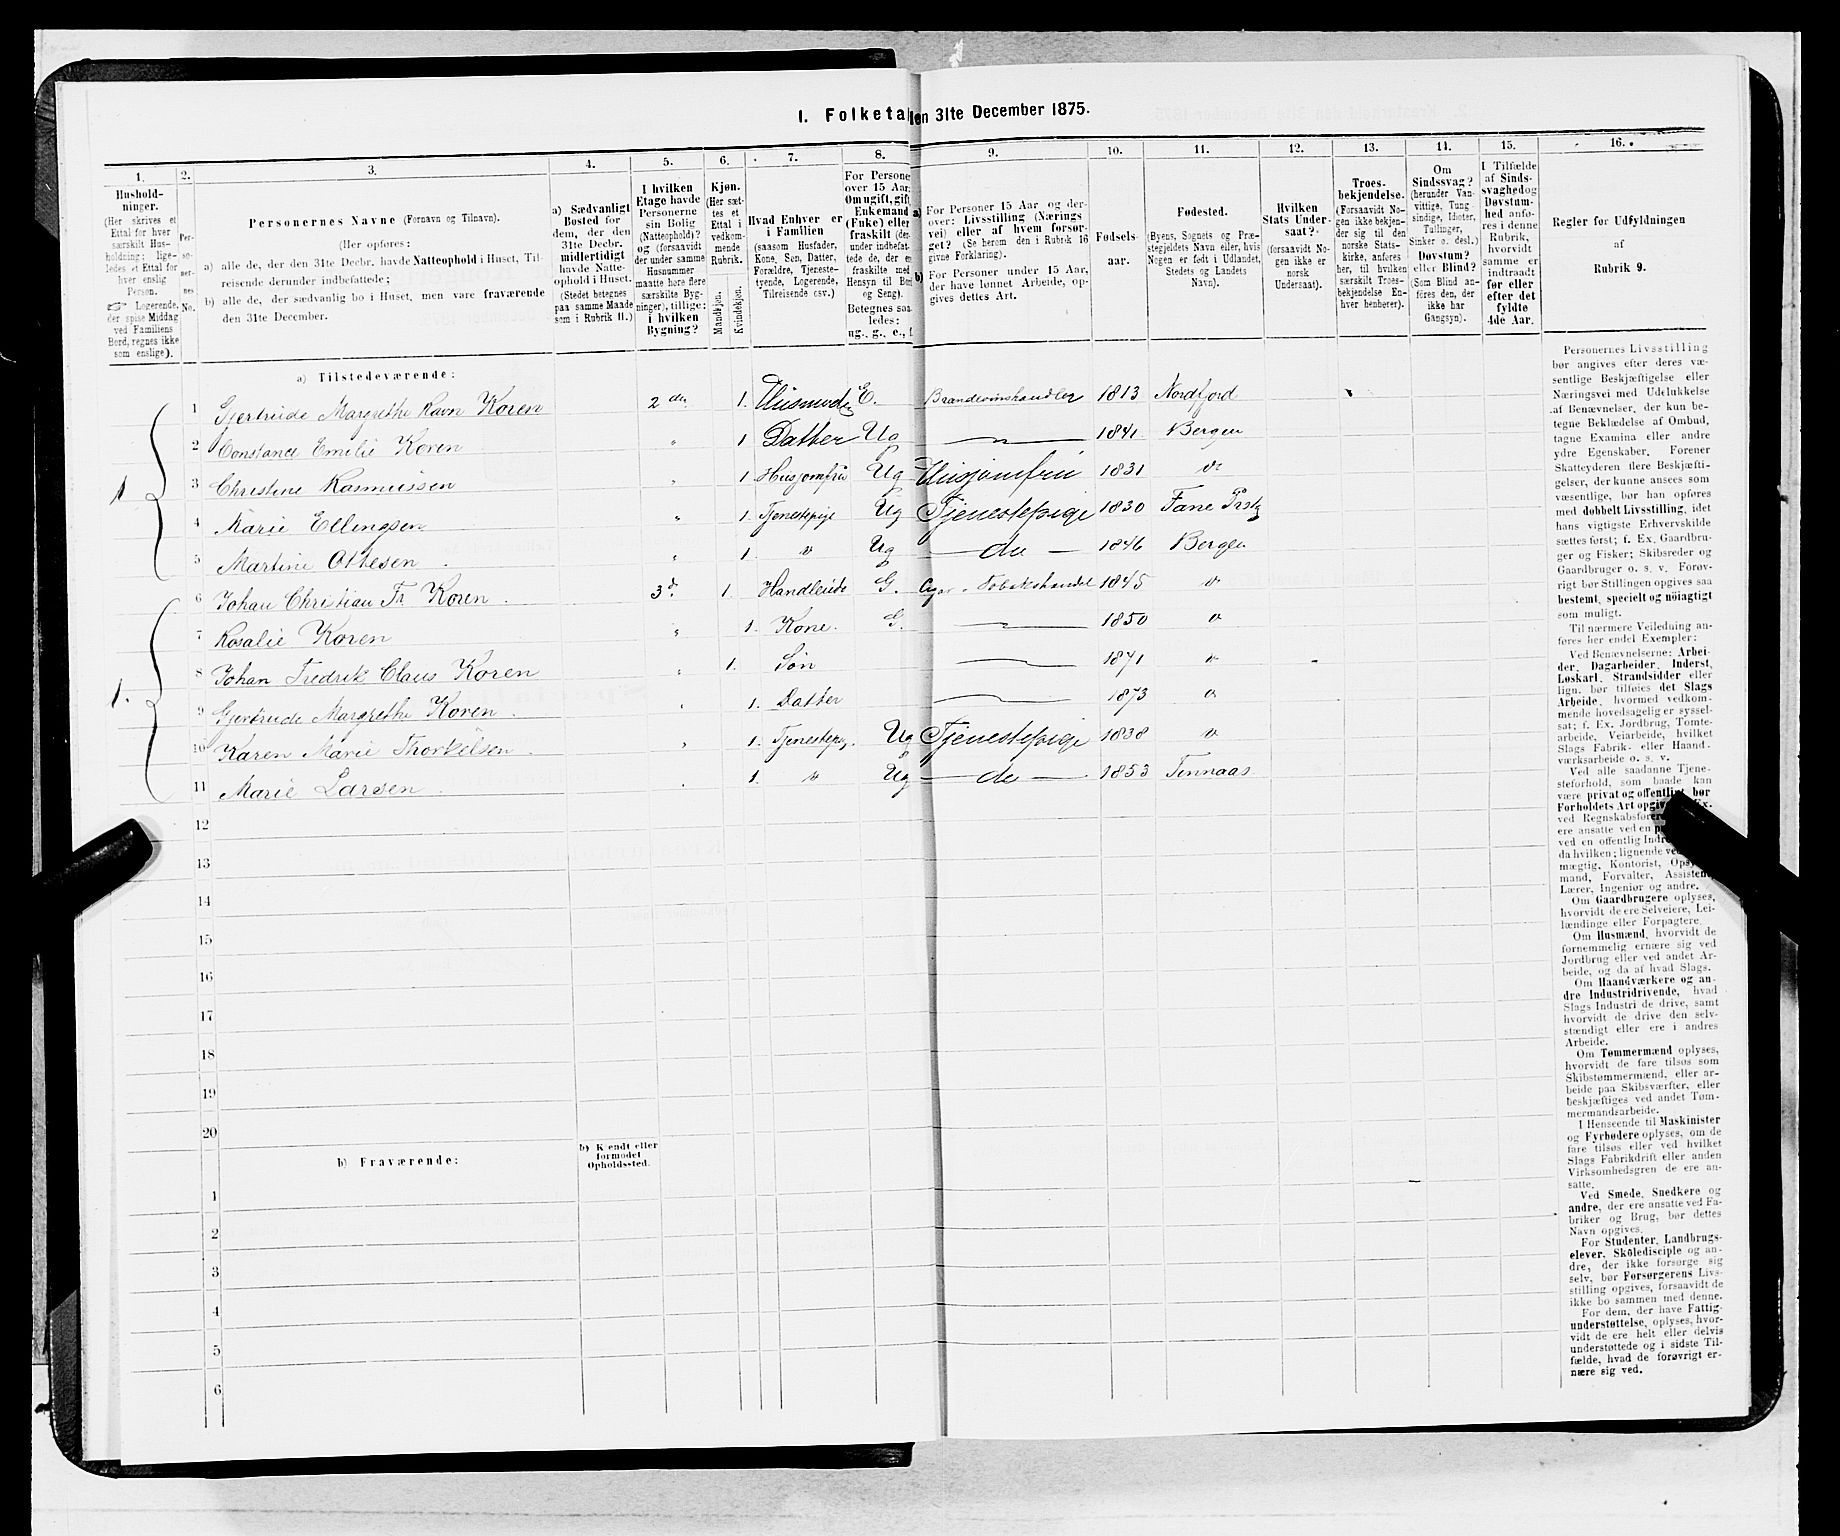 I. Folketal den 31te December 1875.
1. 2. 3. 4. 5. 6. 7. 8. 9. 10. 11. 12. 13. 14. 15. 16.
Hushold-
ninger.
(Her skrives et
Ettal for hver
særskilt Hus-
holdning; lige-
ledes et Ettal for
hver enslig
Person.
☞ Logerende,
der spise Middag
ved Familiens
Bord, regnes ikke
som enslige).
Per-
so-
ner-
nes
No.
Personernes Navne (Fornavn og Tilnavn).
(Her opføres:
a) alle de, der den 31te Decbr. havde Natteophold i Huset, Til-
reisende derunder indbefattede;
b) alle de, der sædvanlig bo i Huset, men vare fraværende
den 31te December.
a) Sædvanligt
Bosted for
dem, der den
31te Decbr.
midlertidigt
havde Natte-
ophold i Huset.
(Stedet betegnes
paa samme Maade
som i Rubrik 11.)
I hvilken
Etage havde
Personerne
sin Bolig
(Natteophold)?
og (forsaavidt
der under samme
Husnummer
maatte høre flere
særskilte Byg-
ninger), tillige:
i hvilken
Bygning?
Kjøn.
(Her sæt-
tes et
Ettal i
vedkom-
mende
Rubrik.
Mandkjøn.
Kvindekjøn.
Hvad Enhver er
i Familien
(saasom Husfader,
Kone, Søn, Datter,
Forældre, Tjeneste-
tyende, Logerende,
Tilreisende osv.)
For Persone
over 15 Aar:
Om ugift, gift
Enkemand
(Enke) eller
fraskilt (der-
under indbefat-
tede de, der ere
fraskilte med
Hensyn til Bord
og Seng).
Betegnes saa-
ledes:
ug., g., e., f.
a) For Personer 15 Aar og der-
over: Livsstilling (Nærings
vei) eller af hvem forsør-
get? (Se herom den i Rubrik 16
givne Forklaring).
b) For Personer under 15 Aar,
der have lønnet Arbeide, op-
gives dettes Art.
Fødsels-
aar.
Fødested.
(Byens, Sognets og Præ-
stegjeldets Navn eller, hvis
Nogen er født i Udlandet,
Stedets og Landets
Navn).
Hvilken
Stats Under-
saat?
(forsaavidt No-
gen ikke er
norsk
Undersaat).
Troes-
bekjendelse.
(Forsaavidt No-
gen ikke bekjen-
der sig til den
norske Stats-
kirke, anføres
her, til hvilken
særskilt Troes-
bekjendelse En-
hver henhører).
Om
Sindssvag?
(herunder Van-
vittige, Tung-
sindige, Idioter,
Tullinger,
Sinker o. desl.)
Døvstum?
eller Blind?
(Som Blind an-
føres den, der
ikke har
Gangsyn).
I Tilfælde
af Sinds-
svaghed og
Døvstum-
hed anfø-
res i denne
Rubrik,
hvorvidt
samme er
indtraadt
før eller
efter det
fyldte
4de Aar.
Regler for Udfyldningen
af
Rubrik 9.
a) Tilstedeværende:
1 1 Gjertrude Margrethe Ravn Koren 2den 1. Husmoder E. Brændevinshandler 1813 Nordfjord
2 Constance Emilie Koren " 1 Datter Ug — " — 1841 Bergen
3 Christine Rasmussen " 1 Husjomfru Ug Husjomfru 1831 "
4 Marie Ellingsen " 1. Tjenestepige Ug Tjenestepige 1830 Fane Prstg
5 Martine Ottesen " 1. " Ug — do — 1846 Bergen
1. 6 Johan Christian Fr Koren 3d. 1. Handlende G. Cigar & Tobakshandel 1845 "
7 Rosalie Koren " 1. Kone. G. — " — 1850 "
8 Johan Fredrik Claus Koren " 1. Søn 1871 "
9 Gjertrude Margrethe Koren " 1. Datter 1873 "
10 Karen Marie Thorkelsen " 1. Tjenestepig. Ug Tjenestepige 1838 "
11 Marie Larsen 1. " Ug — do — 1853 Finnaas
12
13
14
15
16
17
18
19
20
b) Fraværende:
b) Kjendt eller
formodet
Opholdssted.
1
2
3
4
5
6
Personernes Livsstilling
bør angives efter deres væ-
sentlige Beskjæftigelse eller
Næringsvei med Udelukkelse
af Benævnelser, der kun be-
tegne Beklædelse af Ombud,
tagne Examina eller andre
ydre Egenskaber. Forener
Skatteyderen flere Beskjæfti-
gelser, der kunne ansees som
væsentlige, bør han opføres
med dobbelt Livsstilling, idet
hans vigtigste Erhvervskilde
sættes først; f. Ex. Gaardbru-
ger og Fisker; Skibsreder og
Gaardbruger o. s. v. Forøv-
rigt bør Stillingen opgives saa
bestemt, specielt og nöiagtigt
som muligt.
Til nærmere Veiledning an-
føres her endel Exempler:
Ved Benævnelserne: Arbei-
der, Dagarbeider, Inderst,
Løskarl, Strandsidder eller
lign. bør tilføies det Slags
Arbeide, hvormed vedkom-
mende hovedsagelig er syssel-
sat; f. Ex. Jordbrug, Tomte-
arbeide, Veiarbeide, hvilket
Slags Fabrik- eller Haand-
værksarbeide o. s. v.
Ved alle saadanne Tjene-
steforhold, som baade kan
være privat og offentligt, bør
Forholdets Art opgives, f. Ex.
ved Regnskabsførere
ere ansatte ved en
ved en offentlig
da hvilken; lignende ved
mægtig, Kontorist, Opsyns-
mand, Forvalter, Assistent,
Lærer, Ingeniør og andre.
Om Gaardbrugere oplyses,
hvorvidt de ere Selveiere, Lei-
lændinge eller Forpagtere.
Om Husmænd, hvorvidt de
fornemmelig ernære sig ved
Jordbrug eller ved andet Ar-
beide, og da af hvad Slags.
Om Haandværkere og an-
dre Industridrivende, hvad
Slags Industri de drive, samt
hvorvidt de drive den selv-
stændigt eller ere i andres
Arbeide.
Om Tømmermænd oplyses,
hvorvidt de fare tilsøs som
Skibstømmermænd, eller ar-
beide paa Skibsværfter, eller
beskjæftiges ved andet Tøm-
mermandsarbeide.
I Henseende til Maskinister
og Fyrbødere oplyses, om de
fare tilsøs eller ved hvilket
Slags Fabrikdrift eller anden
Virksomhedsgren de ere an-
satte.
Ved Smede, Snedkere og
andre, der ere ansatte ved Fa-
briker og Brug, bør dettes
Navn opgives.
For Studenter, Landbrugs-
elever, Skoledisciple og an-
dre, der ikke forsørge sig
selv, bør Forsørgerens Livs-
stilling opgives, forsaavidt de
ikke bo sammen med denne.
For dem, der have Fattig-
understøttelse, oplyses, hvor-
vidt de ere helt eller delvis
understøttede og i sidste Til-
fælde, hvad de forøvrigt er-
nære sig ved.